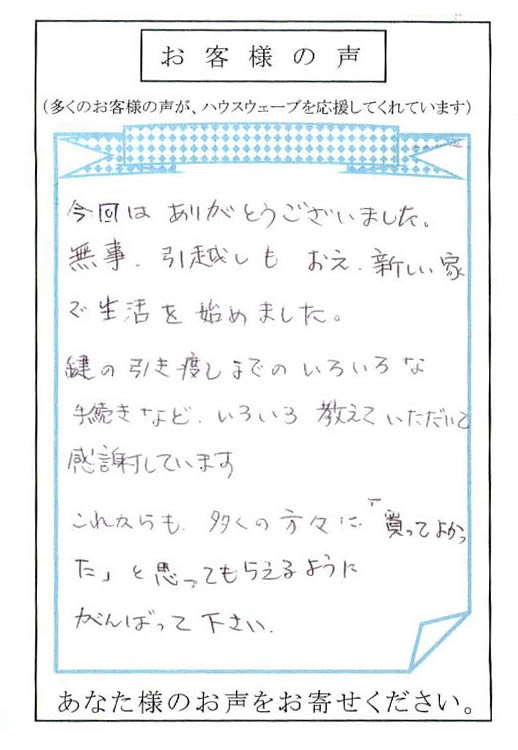 お客様の声
(多くのお客様の声が、ハウスウェーブを応援してくれています)
今回は ありがとうございました。
無事、引越しも おえ、新しい家
で生活を始めました。
鍵の引き渡しまでのいろいろな
手続きなど、いろいろ 教えていただいて
感謝しています
これからも、多くの方々に「買ってよかっ
た」と思ってもらえるように
がんばって下さい。
あなた様のお声をお寄せください。